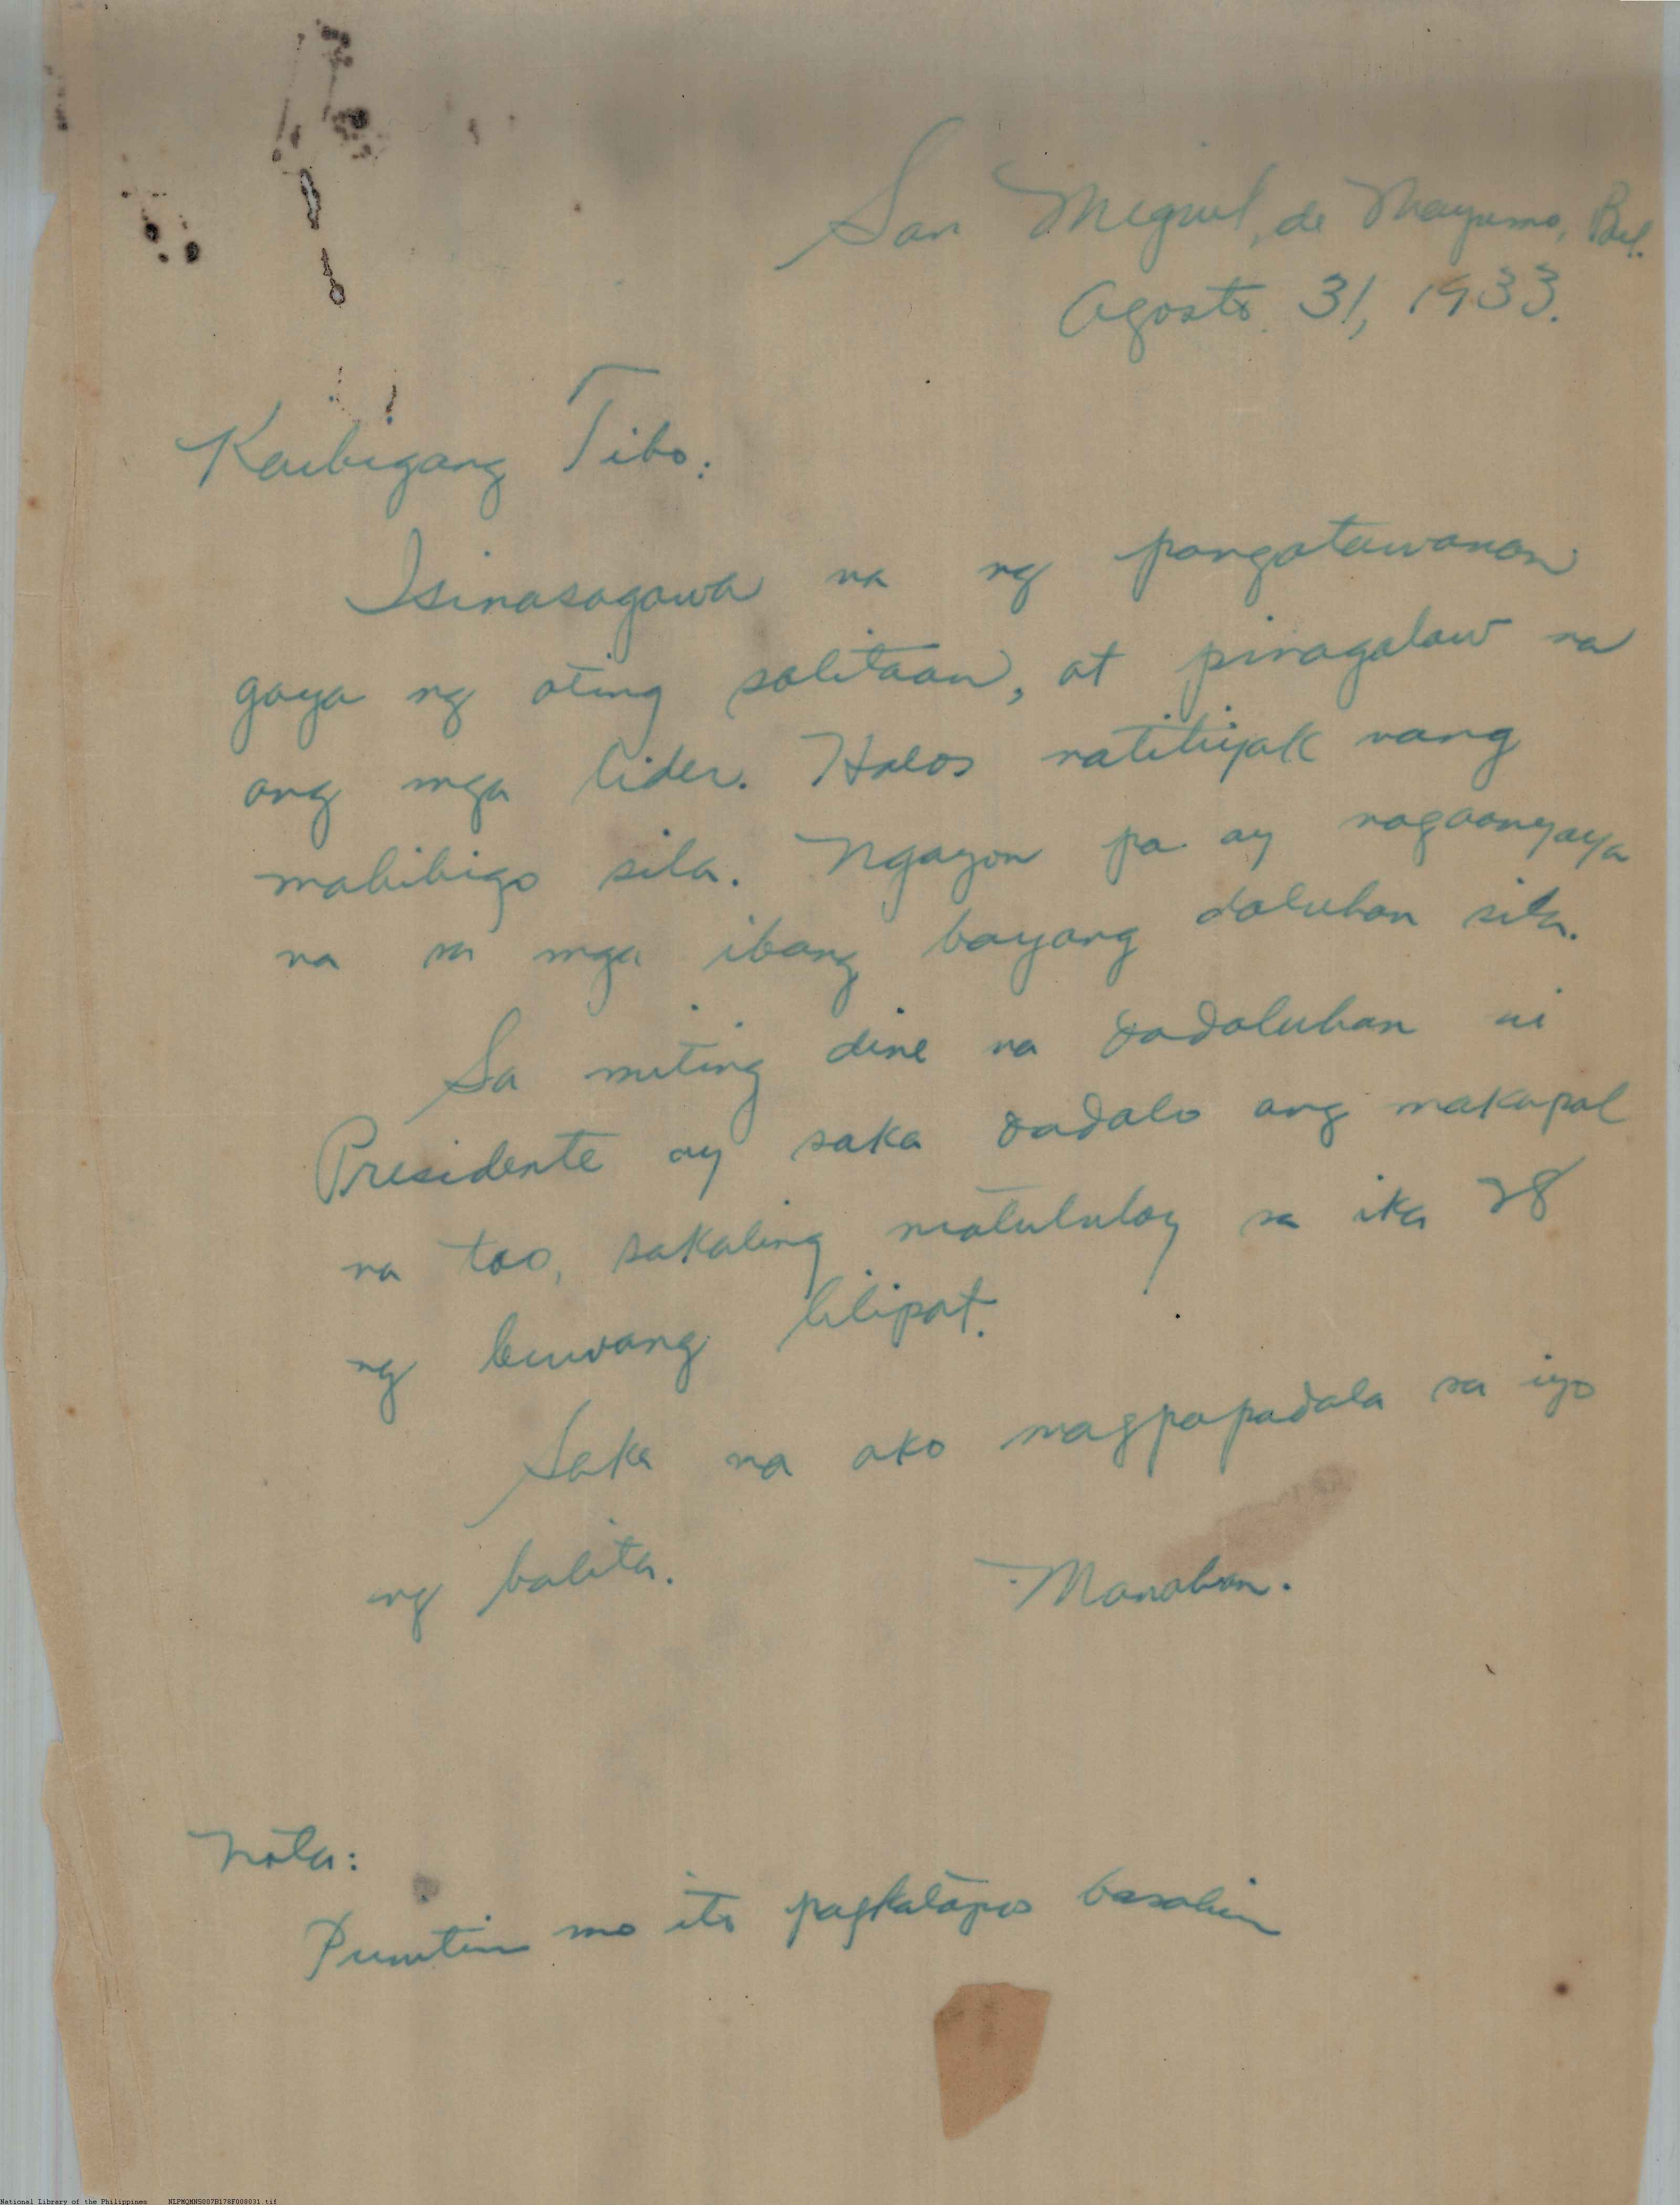 San Miguel, de Mayumo, Bul.
Agosto 31, 1933.
Kaibigang Tibo:
Isinasagawa na ng pangatawanan
gaya ng ating salitaan, at pinagalaw na
ang mga lider. Halos natitiyak nang
mabibigo sila. Ngayon pa ay nagaanyaya
na sa mga ibang bayang daluhan sila.
Sa miting dine na dadaluhan ni
Presidente ay saka dadalo ang makapal
na tao, sakaling matutuloy sa ika 28
ng buwang lilipat.
Saka na ako magpapadala sa iyo
ng balita.
Manahan.
Nota:
Punitin mo ito pagkatapos basahin
National Library of the Philippines NLPMQMNS007B178F008031.tif